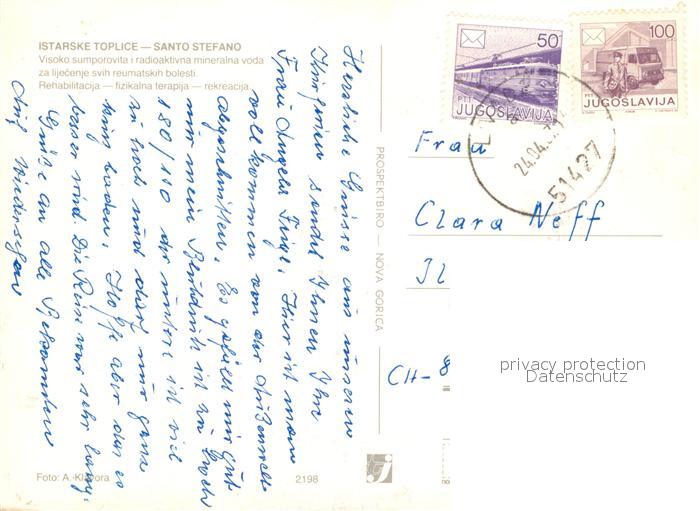 ISTARSKE TOPLICE — SANTO STEFANO
Visoko sumporovita i radioaktivna mineralna voda
za liječenje svih reumatskih bolesti.
Rehabilitacja — fizikalna terapija — rekreacija
Herzliche Grüsse aus unserer
sendet Ihnen Ihr
Frau Angela Hier ist man
vollkommen von der Außenwelt
abgeschnitten. Es gefällt mir gut
nur mein Blutdruck ist zu hoch
180/110 der untere ist viel
zu hoch und darf nur ganz
wenig baden. Hoffe aber das es
besser wird. Die Reise war sehr lang.
Grüße an alle Bekannten
Auf Wiedersehen
Foto: A. Klavora
2198
PROSPEKTBIRO — NOVA GORICA
50
PTT
JUGOSLAVIJA
100
PTT
JUGOSLAVIJA
24.04.
51427
Frau
Clara Neff
Jl
CH-8
privacy protection
Datenschutz